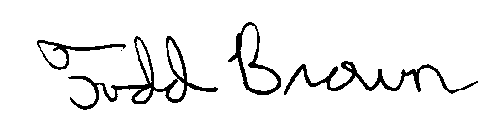 Todd Brown